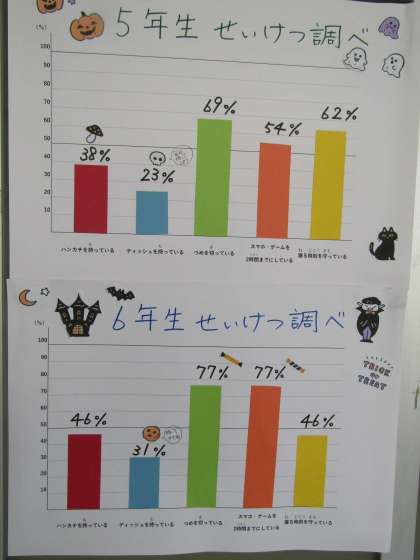 5年生 せいけつ調べ
(%)
100
90
80
70
60
50
40
30
20
10
38%
23%
69%
54%
62%
ハンカチを持っている
ティッシュを持っている
つめを切っている
スマホ・ゲームを
2時間までにしている
寝る時刻を守っている
6年生 せいけつ調べ
(%)
100
90
80
70
60
50
40
30
20
10
46%
31%
77%
77%
46%
TRICK
OR
TREAT
ハンカチを持っている
ティッシュを持っている
つめを切っている
スマホ・ゲームを
2時間までにしている
寝る時刻を守っている